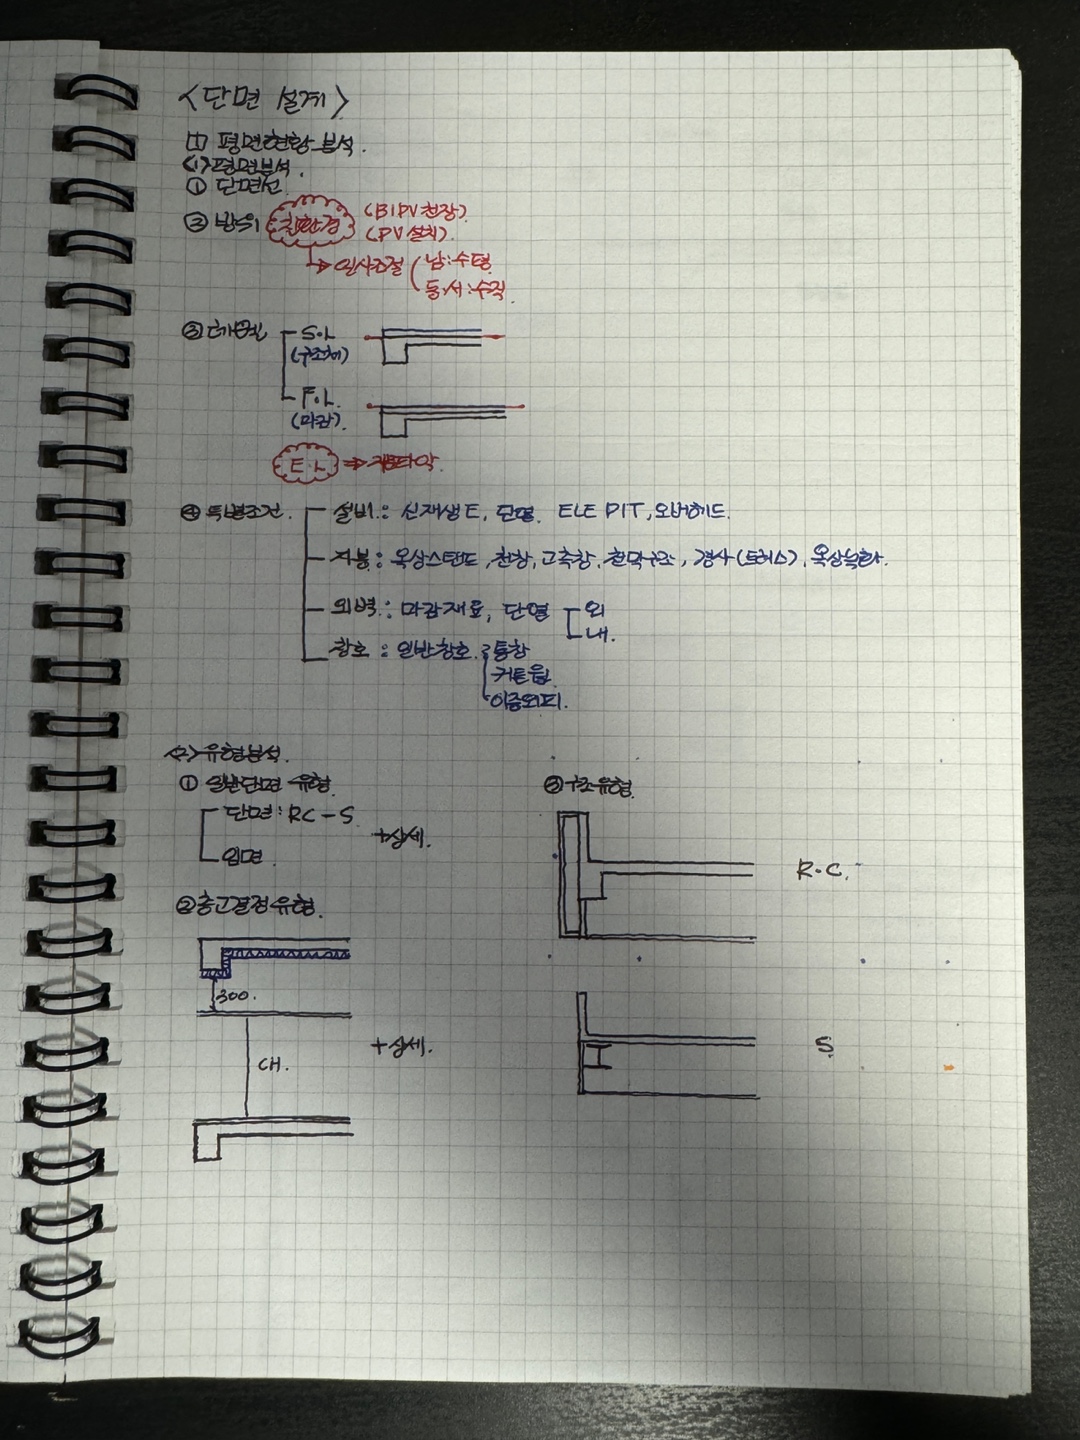 <단면 설계>
[1] 평면현황 분석.
<1> 평면분석.
① 단면선
② 방위 친환경 (BIPV 천창)
(PV 설치)
→ 일사조절 ( 남:수평
동·서:수직
③ S.L
(구조체)
F.L.
(마감).
E.L ⇒ 파악.
④ 특별조건. 설비 : 신재생E, 단열. ELE PIT, 오버헤드.
지붕 : 옥상스탠드, 천창, 고측창, 현막구조, 경사(트러스), 옥상녹화.
외벽 : 마감재료, 단열 외
내.
창호 : 일반창호 : 통창
커튼월
이중외피.
<2> 유형분석.
① 일반단면 유형
단면 : RC - S
입면.
+상세.
② 층고결정 유형.
300.
CH.
+상세.
③ 구조유형.
R.C.
S